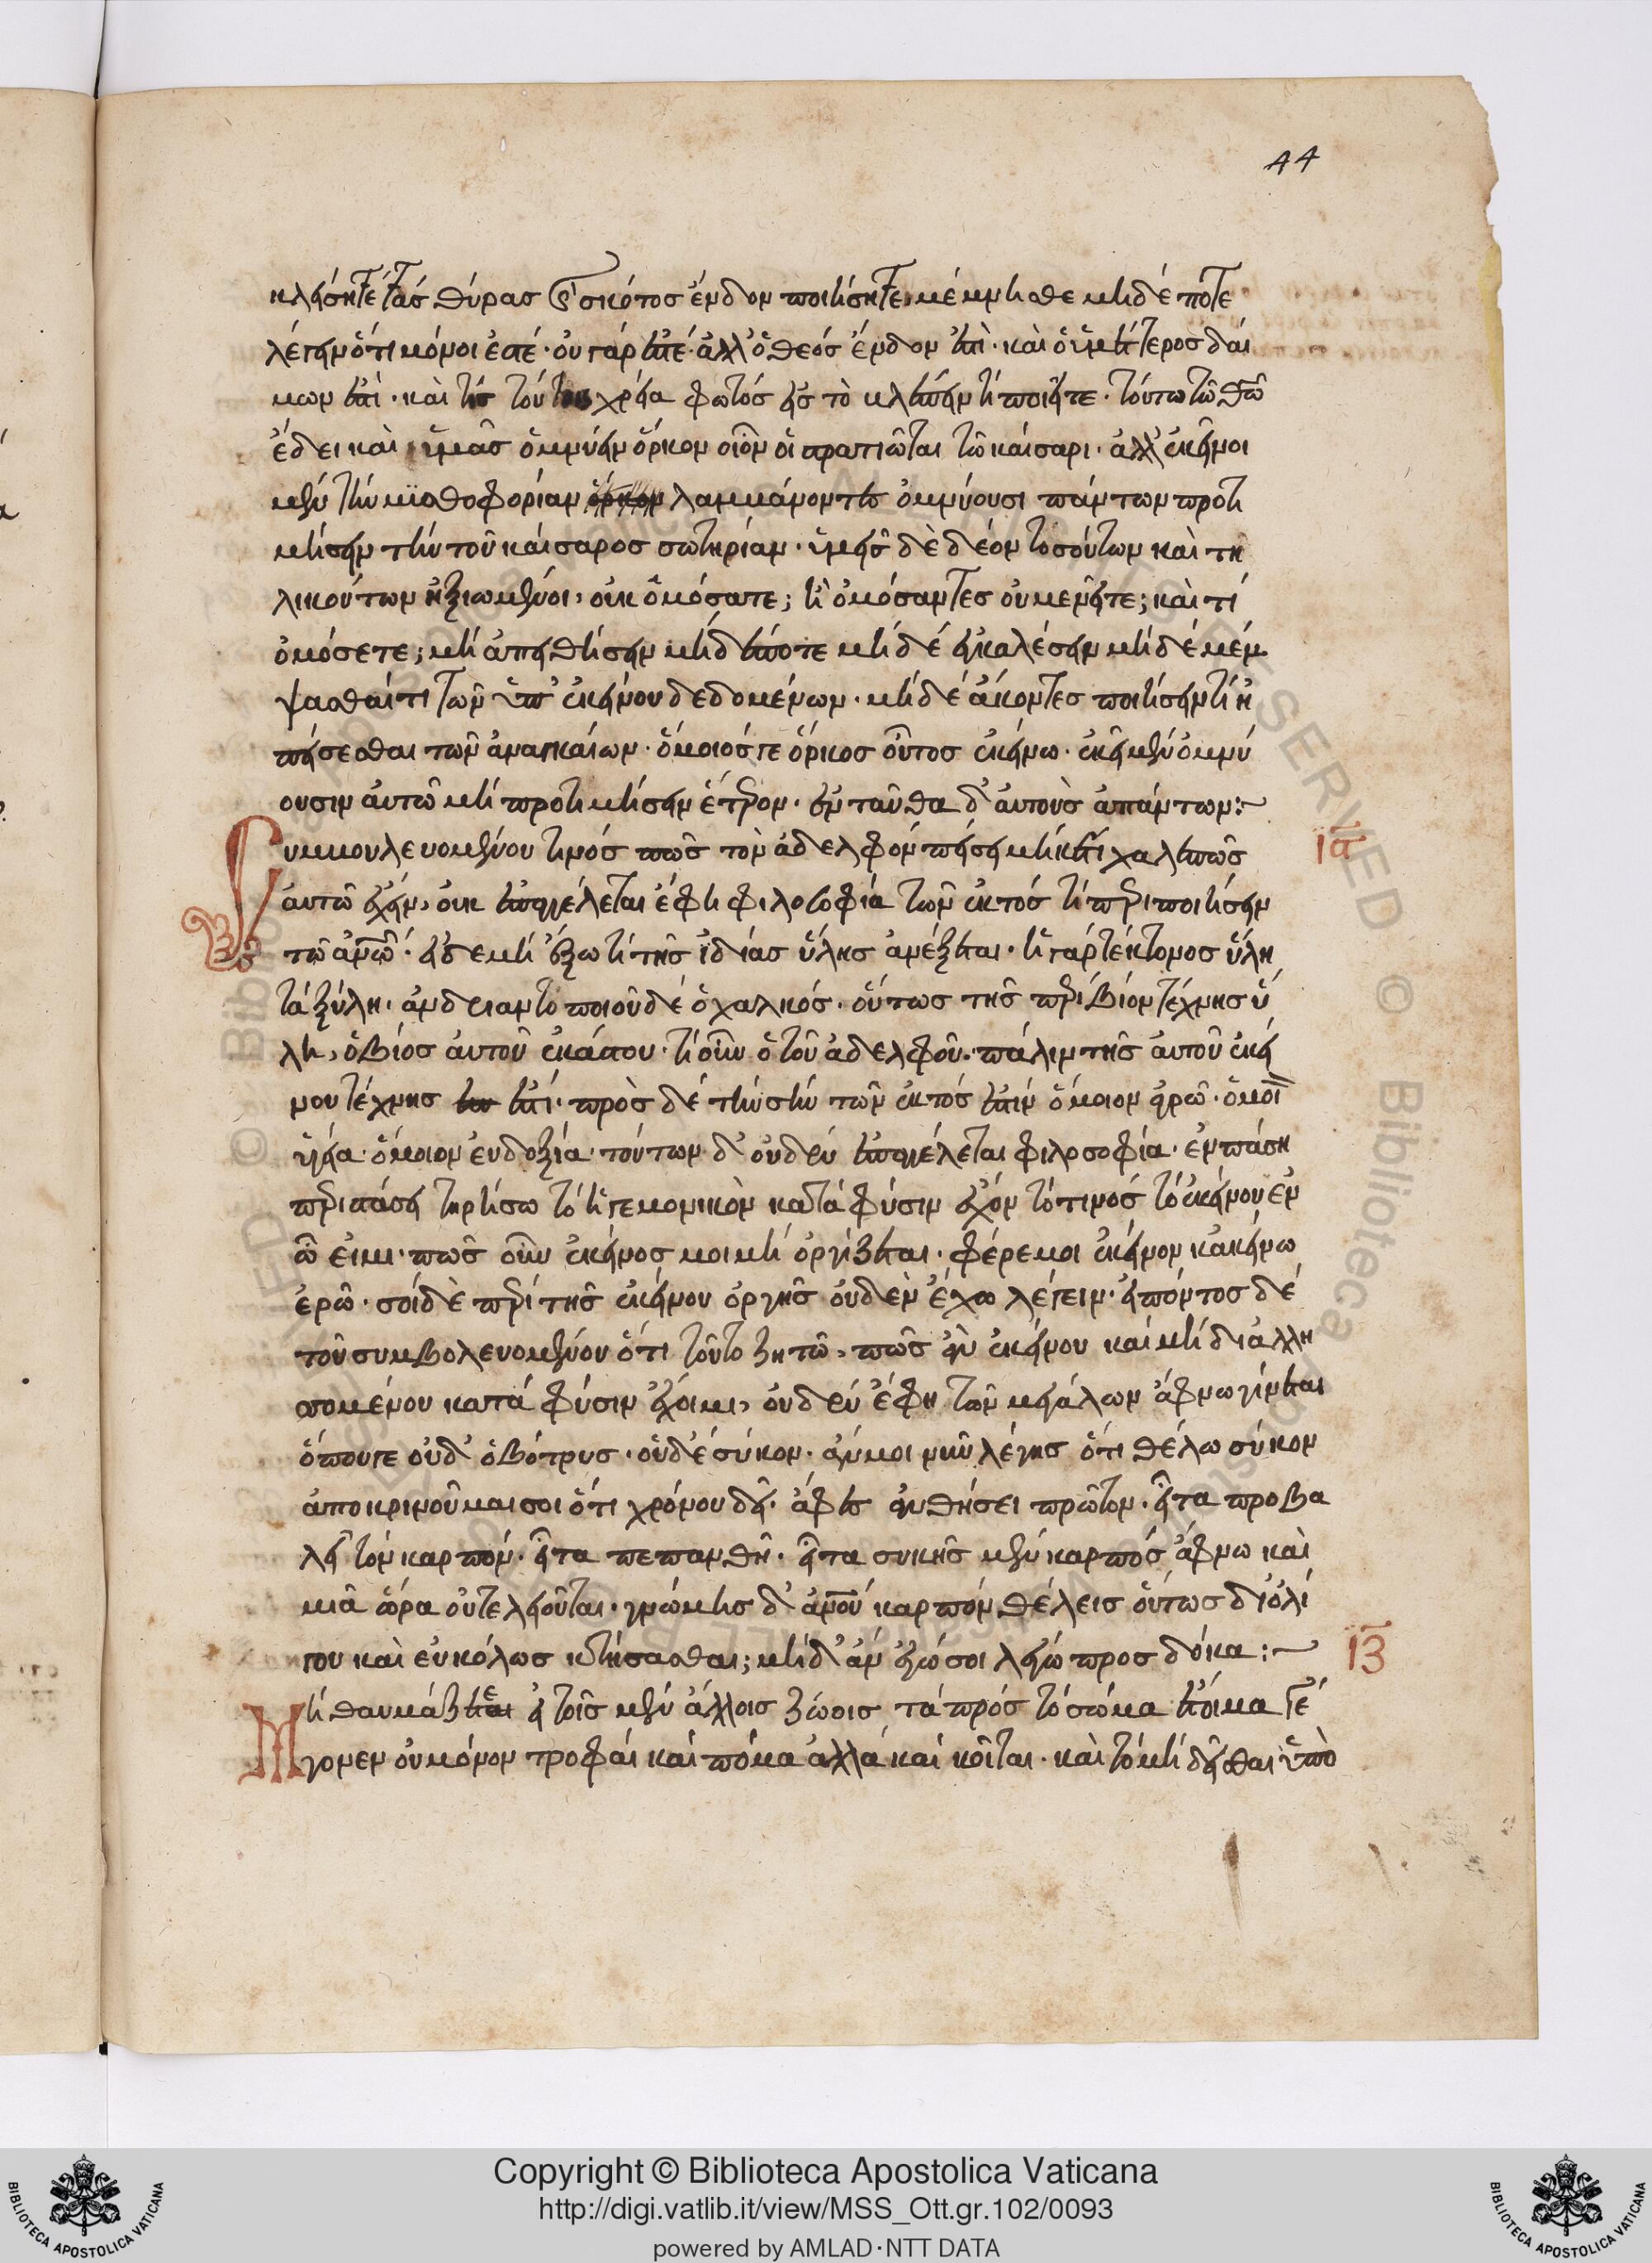 44
κλείσητε τὰς θύρας καὶ σκότος ἔνδον ποιήσητε μέμνησθε μηδέποτε
λέγειν ὅτι μόνοι ἐστέ· οὐ γάρ ἐστε· ἀλλ' ὁ θεὸς ἔνδον ἐστὶ· καὶ ὁ ὑμέτερος δαί
μων ἐστί· καὶ τίς τούτοις χρεία φωτός εἰς τὸ βλέπειν τί ποιεῖτε· τούτω τῶ θεῶ
ἔδει καὶ ὑμᾶς ὀμνύειν ὅρκον οἷον οἱ στρατιῶται τῶ καίσαρι· ἀλλ' ἐκεῖνοι
μὲν τὴν μισθοφορίαν λαμβάνοντες ὀμνύουσι πάντων προτι
μήσειν τὴν τοῦ καίσαρος σωτηρίαν· ὑμεῖς δὲ δέον τοσούτων καὶ τη
λικούτων ἠξιωμένοι, οὐκ ὀμόσατε; ἢ ὀμόσαντες οὐ μενεῖτε; καὶ τί
ὀμόσετε; μὴ ἀπειθήσειν μηδέποτε μηδέ ἐγκαλέσειν μηδέ μέμ
ψασθαί τι τῶν ὑπ' ἐκείνου δεδομένων· μηδέ ἄκοντες ποιήσειν τί ἢ
πείσεσθαι τῶν ἀναγκαίων· ὅμοιός γε ὅρκος οὗτος ἐκείνω· ἐκεῖ μὲν ὀμνύ
ουσιν αὐτῶ μὴ προτιμήσειν ἕτερον· ἐνταῦθα δ' αὑτοὺς ἁπάντων:~
Συμβουλευομένου τινός πῶς τὸν ἀδελφὸν πείσῃ μηκέτι χαλεπῶς
ιε
αὐτῶ ἔχειν, οὐκ ἐπαγγέλεται ἔφη φιλοσοφία τῶν ἐκτός τί περιποιήσειν
τῶ ἀνῶ· εἰ δε μὴ ἔξω τί τῆς ἰδίας ὕλης ἀνέξεται· ἡ γάρ τέκτονος ὕλη
τὰ ξύλη· ἀνδριαντοποιοῦ δέ ὁ χαλκός· οὕτως τῆς περὶ βίον τέχνης ὕ
λη, ὁ βίος αὐτοῦ ἑκάστου· τί οὖν ὁ τοῦ ἀδελφοῦ· πάλιν τῆς αὐτοῦ ἐκεί
νου τέχνης ἐστί· πρὸς δέ τὴν σὴν τῶν ἐκτός ἐστίν ὅμοιον ἀγρῶ· ὅμοι
ὑγεία· ὅμοιον εὐδοξία· τούτων δ' οὐδέν ἐπαγγέλεται φιλοσοφία· ἐν πάση
περιστάσει τηρήσω τὸ ἡγεμονικὸν κατά φύσιν ἔχον τὸ τινός τὸ ἐκείνου ἐν
ὧ εἰμι· πῶς οὖν ἐκεῖνος μοι μὴ ὀργίζεται· φέρε μοι ἐκεῖνον κἀκείνω
ἐρῶ· σοὶ δὲ περὶ τῆς ἐκείνου ὀργῆς οὐδὲν ἔχω λέγειν· εἰπόντος δέ
τοῦ συμβολευομένου ὅτι τοῦτο ζητῶ, πῶς ἂν ἐκείνου καί μὴ διαλλη
σομένου κατά φύσιν ἔχοιμι, οὐδέν ἔφη τῶν μεγάλων ἄφνω γίνεται
ὅπου γε οὐδ' ὁ βότρυς· οὐδέ σύκον· ἄν μοι νῦν λέγης ὅτι θέλω σύκον
ἀποκρινοῦμαι σοι ὅτι χρόνου δεῖ· ἄφες ἀνθήσει πρῶτον· εἶτα προβα
λεῖ τὸν καρπόν· εἶτα πεπανθῆ· εἶτα συκῆς μὲν καρπός ἄφνω καὶ
μιᾶ ὥρα οὐ τελειοῦται· γνώμης δ' ἀνοῦ καρπόν θέλεις οὕτως δι' ὀλί
γου καὶ εὐκόλως κτήσασθαι; μὴ δ' ἄν ἐγώ σοι λέγω προσδόκα:~
ις
Μὴ θαυμάζετε εἰ τοῖς μὲν ἄλλοις ζώοις τά πρός τὸ σῶμα ἕτοιμα γέ
γονεν οὐ μόνον τροφαὶ καί πόμα ἀλλά καί κοίται· καὶ τὸ μὴ δεῖσθαι ὑπὸ
Copyright © Biblioteca Apostolica Vaticana
http://digi.vatlib.it/view/MSS_Ott.gr.102/0093
powered by AMLAD·NTT DATA
BIBLIOTECA APOSTOLICA VATICANA
BIBLIOTECA APOSTOLICA VATICANA